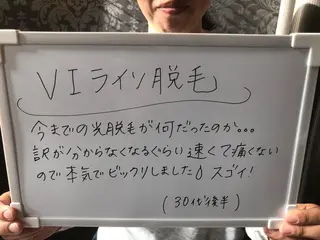 VIライン脱毛
今までの光脱毛が何だったのか。。。
訳が分からなくなるぐらい速くて痛くない
ので本気でビックリしました💧スゴイ!
(30代後半)